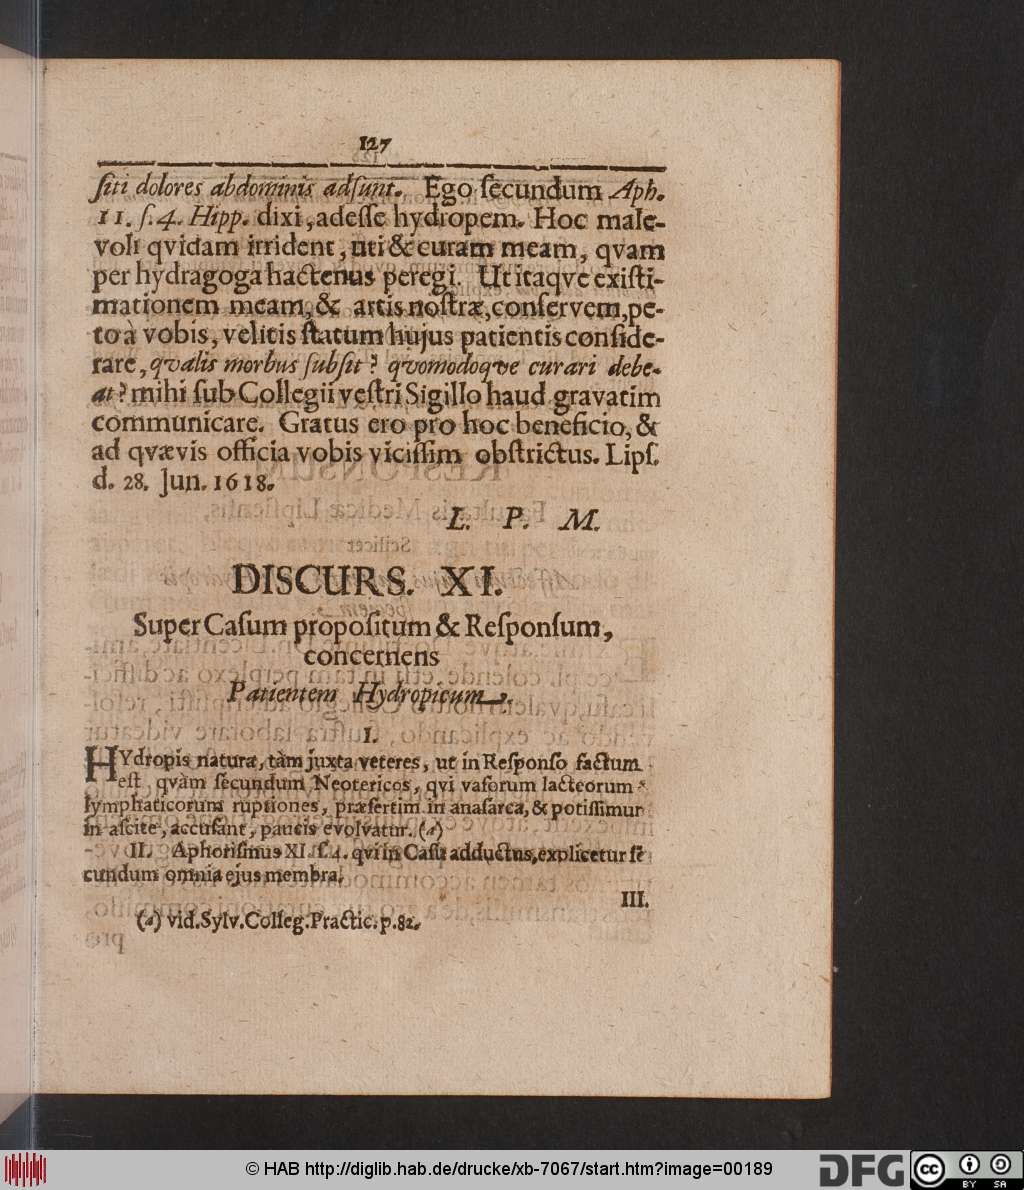 127
ſiti dolores abdominis adſunt. Ego ſecundum Aph.
11. ſ. 4. Hipp. dixi, adeſſe hydropem. Hoc male-
voli qvidam irrident, uti & curam meam, qvam
per hydragoga hactenus peregi. Ut itaqve exiſti-
mationem meam, & artis noſtræ, conſervem, pe-
to à vobis, velitis ſtatum hujus patientis conſide-
rare, qvalis morbus ſubſit? qvomodoqve curari debe-
at? mihi ſub Collegii veſtri Sigillo haud gravatim
communicare. Gratus ero pro hoc beneficio, &
ad qvævis officia vobis viciſſim obſtrictus. Lipſ.
d. 28. Jun. 1618.
L. P. M.
DISCURS. XI.
Super Caſum propoſitum & Reſponſum,
concernens
Patientem Hydropicum.
I.
HYdropis natura, tàm juxta veteres, ut in Reſponſo factum
eſt, qvàm ſecundum Neotericos, qvi vaſorum lacteorum
lymphaticorum ruptiones, præſertim in anaſarca, & potiſſimum
in aſcite, accuſant, paucis evolvatur. (a)
II. Aphoriſmus XI. ſ. 4. qvi in Caſu adductus, explicetur ſe
cundum omnia ejus membra.
III.
(a) vid. Sylv. Colleg. Practic. p. 82.
© HAB http://diglib.hab.de/drucke/xb-7067/start.htm?image=00189
DFG
cc
BY SA